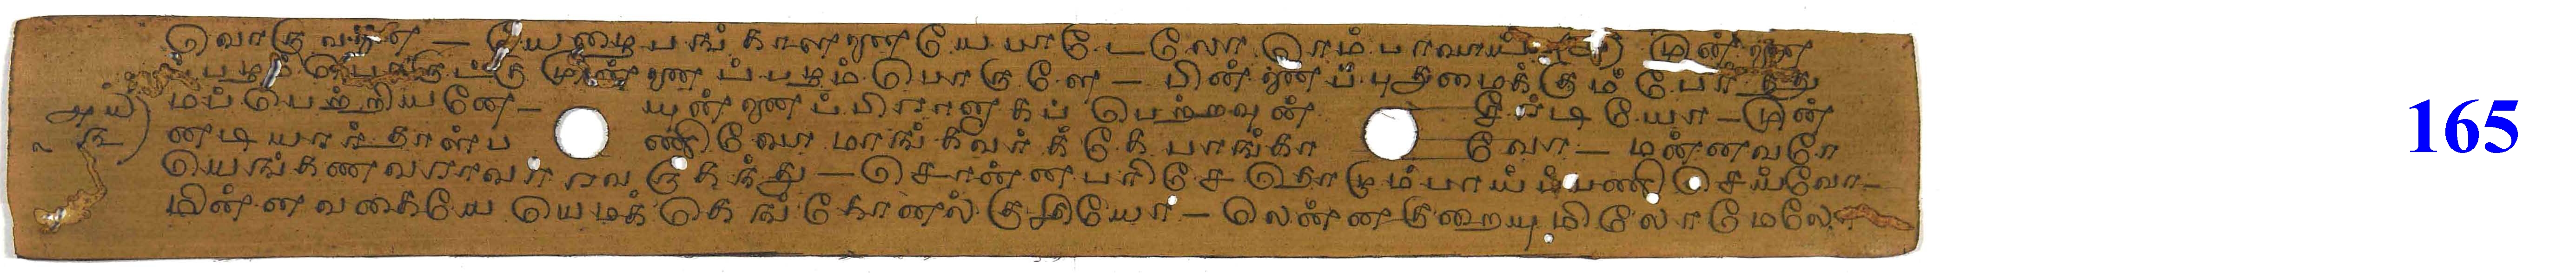 வொருவனை — யேழைபங்காளனையேபாடேலோரெம்பாவாய் முன்னை
பழம்பொருட்கு முன்னைப்பழம்பொருளே — பின்னைப்புதுமைக்கும்பேர்த்து
மப்பெற்றியனே — யுன்னைப்பிரானாகப்பெற்றவுன் சீரடியோ — முன்
னடியார்தாள்ப ணிவோமாங்கவர்க்கேபாங்கா வோ — மன்னவரே
யெங்கணவராவாரவருகந்து — சொன்னபரிசேதொழும்பாய்ப்பணிசெய்வோ —
மின்னவகையேயெமக்கெங்கோனல்குதியே — லென்னகுறையுமிலோமேலோ
165